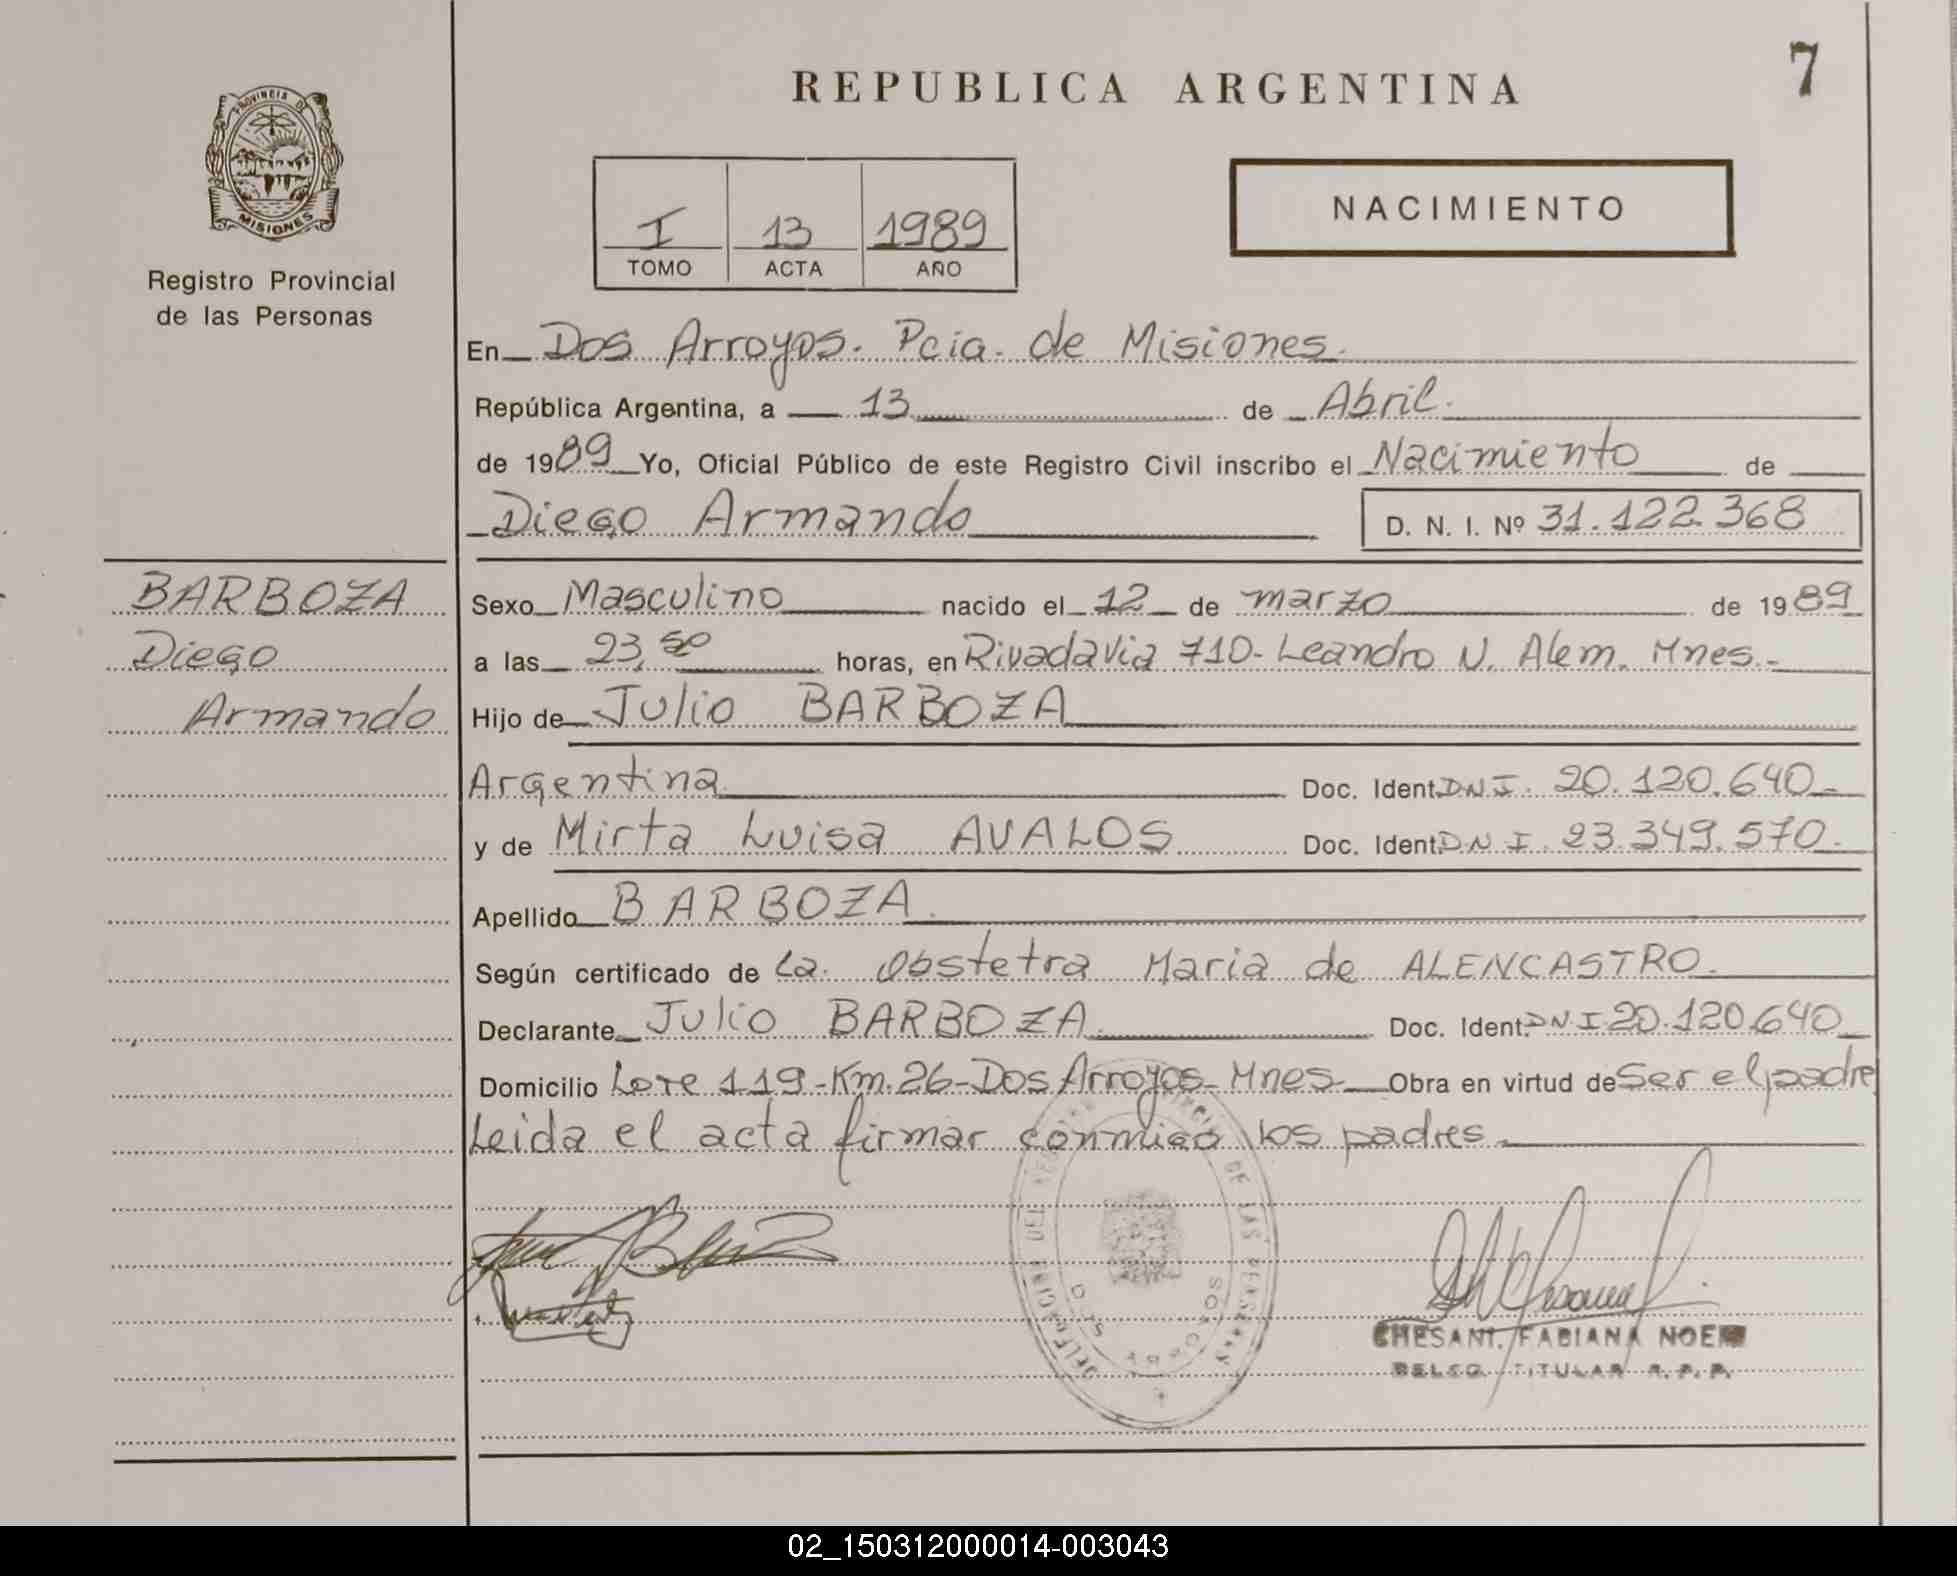 REPUBLICA ARGENTINA
7
PROVINCIA DE
MISIONES
Registro Provincial
de las Personas
I 13 1989
TOMO ACTA AÑO
NACIMIENTO
En Dos Arroyos. Pcia. de Misiones.
República Argentina, a 13 de Abril.
de 1989 Yo, Oficial Público de este Registro Civil inscribo el Nacimiento de
Diego Armando D. N. I. Nº 31.122.368
BARBOZA
Diego
Armando
Sexo Masculino nacido el 12 de marzo de 1989
a las 23,50 horas, en Rivadavia 710- Leandro N. Alem. Mnes.-
Hijo de Julio BARBOZA
Argentina Doc. Ident. DNI. 20.120.640.-
y de Mirta Luisa AVALOS Doc. Ident. DNI. 23.349.570.-
Apellido BARBOZA.
Según certificado de La. Obstetra Maria de ALENCASTRO.
Declarante Julio BARBOZA. Doc. Ident. DNI 20.120.640
Domicilio Lote 119-Km.26-Dos Arroyos-Mnes- Obra en virtud de Ser el padre
Leida el acta firmar conmigo los padres.
DELEGACION DEL REGISTRO PROVINCIAL DE LAS PERSONAS
DOS ARROYOS
CHESANI, FABIANA NOEMI
DELEG. TITULAR R. P. P.
02_150312000014-003043